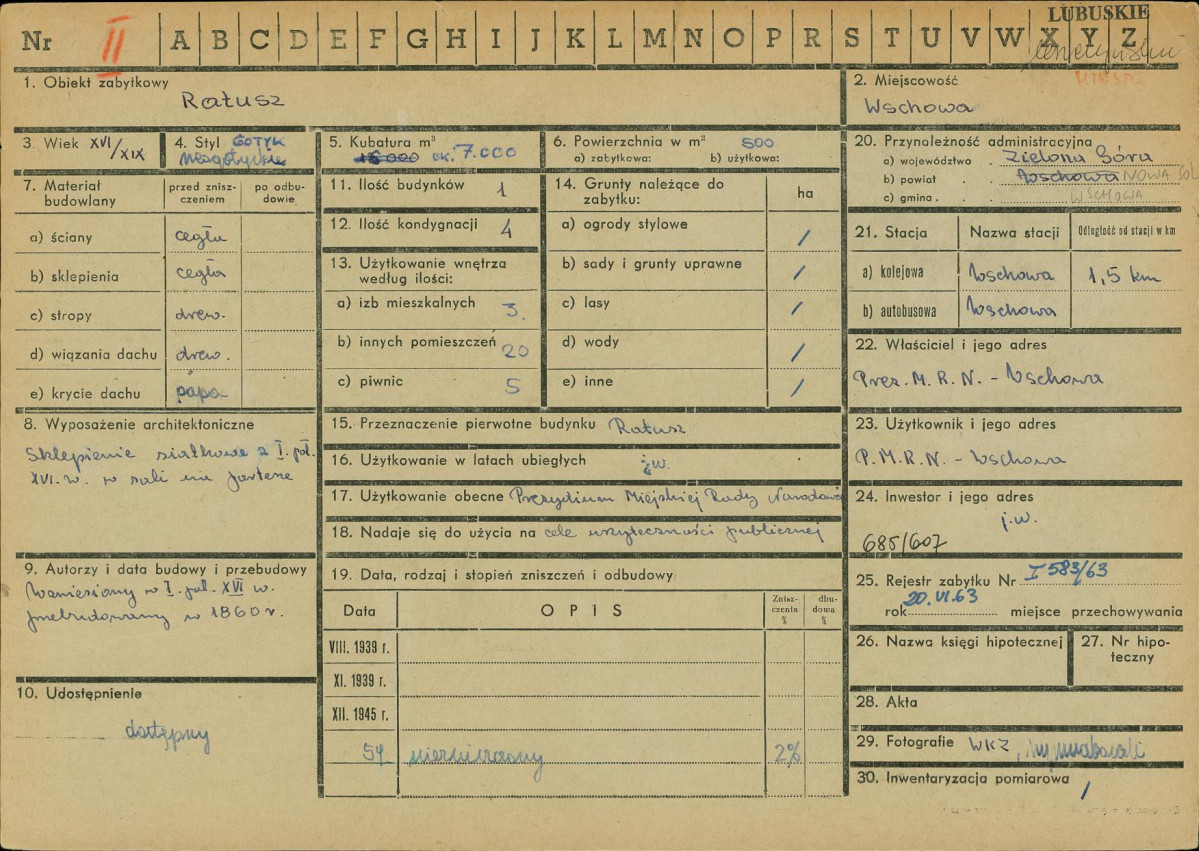 LUBUSKIE
Nr II A B C D E F G H I J K L M N O P R S T U V W X Y Z
1. Obiekt zabytkowy
Ratusz
2. Miejscowość
Wschowa
3. Wiek XVI/XIX
4. Styl GOTYK
neogotyckie
5. Kubatura m³
16 000 ok. 7.000
6. Powierzchnia w m² 500
a) zabytkowa: b) użytkowa:
7. Materiał budowlany
przed zniszczeniem
po odbudowie
a) ściany cegła
b) sklepienia cegła
c) stropy drew.
d) wiązania dachu drew.
e) krycie dachu papa
8. Wyposażenie architektoniczne
Sklepienie siatkowe z I. poł.
XVI. w. w sali na parterze
9. Autorzy i data budowy i przebudowy
Wzniesiony w I. poł. XVI w.
przebudowany w 1860 r.
10. Udostępnienie
dostępny
11. Ilość budynków 1
12. Ilość kondygnacji 4
13. Użytkowanie wnętrza
według ilości:
a) izb mieszkalnych 3.
b) innych pomieszczeń 20
c) piwnic 5
14. Grunty należące do
zabytku:
ha
a) ogrody stylowe /
b) sady i grunty uprawne /
c) lasy /
d) wody /
e) inne /
15. Przeznaczenie pierwotne budynku Ratusz
16. Użytkowanie w latach ubiegłych j.w.
17. Użytkowanie obecne Prezydium Miejskiej Rady Narodowej
18. Nadaje się do użycia na cele użyteczności publicznej
19. Data, rodzaj i stopień zniszczeń i odbudowy
Data OPIS Zniszczenia % dbudowa %
VIII. 1939 r.
XI. 1939 r.
XII. 1945 r.
59 niezniszczony 2%
20. Przynależność administracyjna
a) województwo . Zielona Góra
b) powiat . . Wschowa NOWA SÓL
c) gmina . . WSCHOWA
21. Stacja Nazwa stacji Odległość od stacji w km
a) kolejowa Wschowa 1,5 km
b) autobusowa Wschowa
22. Właściciel i jego adres
Prez. M. R. N. - Wschowa
23. Użytkownik i jego adres
P. M. R. N. - Wschowa
24. Inwestor i jego adres
j.w.
685/607
25. Rejestr zabytku Nr I 583/63
rok 20.VI.63 miejsce przechowywania
26. Nazwa księgi hipotecznej
27. Nr hipoteczny
28. Akta
29. Fotografie WKZ
30. Inwentaryzacja pomiarowa /